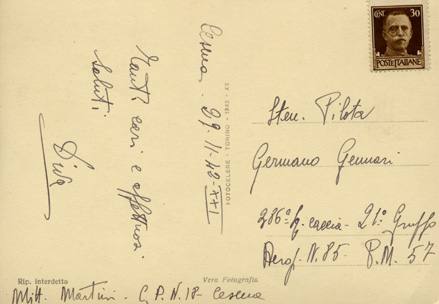 Cesena - 29-11-42-XXI
Tanti cari e affettuosi
saluti
Diva
FOTOCELERE - TORINO - 1942 - XX
CENT. 30
POSTE ITALIANE
Sten. Pilota
Germano Gennari
286ª Sq. caccia - 21º Gruppo
Aerop. N. 85. P.M. 57
Rip. interdetta
Vera Fotografia
Mitt. Martini - C.P.N.18 - Cesena